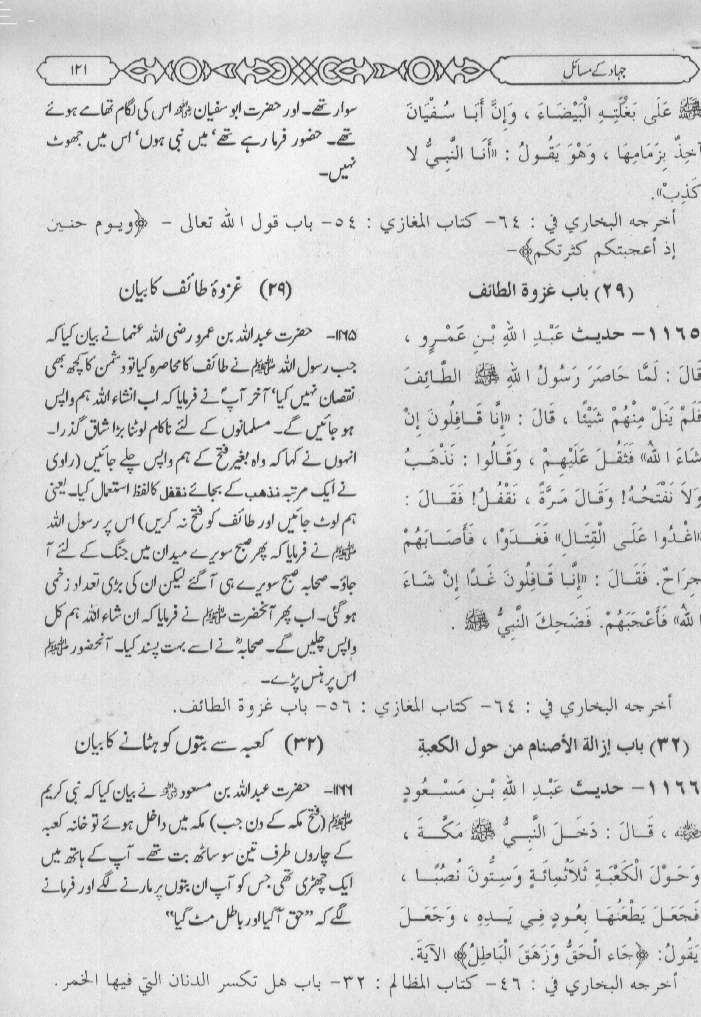 جہاد کے مسائل
۱۲۱
ﷺ عَلَى بَغْلَتِهِ الْبَيْضَاءَ ، وَإِنَّ أَبَا سُفْيَانَ
آخِذٌ بِزِمَامِهَا ، وَهْوَ يَقُولُ : «أَنَا النَّبِيُّ لا
كَذِبْ».
سوار تھے۔ اور حضرت ابوسفیان رضی اللہ عنہ اس کی لگام تھامے ہوئے
تھے۔ حضور فرما رہے تھے ’میں نبی ہوں‘ اس میں جھوٹ
نہیں۔
أخرجه البخاري في : ٦٤- كتاب المغازي : ٥٤- باب قول الله تعالى - ﴿ويوم حنين
إذ أعجبتكم كثرتكم﴾-
(٢٩) باب غزوة الطائف
١١٦٥- حديث عَبْدِ اللهِ بْنِ عَمْرٍو ،
قَالَ : لَمَّا حَاصَرَ رَسُولُ اللهِ ﷺ الطَّائِفَ
فَلَمْ يَنَلْ مِنْهُمْ شَيْئًا ، قَالَ : «إِنَّا قَافِلُونَ إِنْ
شَاءَ اللهُ» فَثَقُلَ عَلَيْهِمْ ، وَقَالُوا : نَذْهَبُ
وَلاَ نَفْتَحُهُ! وَقَالَ مَرَّةً ، نَقْفُلُ! فَقَالَ :
«اغْدُوا عَلَى الْقِتَالِ» فَغَدَوْا ، فَأَصَابَهُمْ
جِرَاحٌ. فَقَالَ : «إِنَّا قَافِلُونَ غَدًا إِنْ شَاءَ
اللهُ» فَأَعْجَبَهُمْ. فَضَحِكَ النَّبِيُّ ﷺ .
(۲۹) غزوۂ طائف کا بیان
۱۱۶۵- حضرت عبداللہ بن عمرو رضی اللہ عنہما نے بیان کیا کہ
جب رسول اللہ ﷺ نے طائف کا محاصرہ کیا تو دشمن کا کچھ بھی
نقصان نہیں کیا‘ آخر آپؐ نے فرمایا کہ اب انشاء اللہ ہم واپس
ہو جائیں گے۔ مسلمانوں کے لئے ناکام لوٹنا بڑا شاق گذرا۔
انہوں نے کہا کہ واہ بغیر فتح کے ہم واپس چلے جائیں (راوی
نے ایک مرتبہ نذهب کے بجائے نقفل کا لفظ استعمال کیا۔ یعنی
ہم لوٹ جائیں اور طائف کو فتح نہ کریں) اس پر رسول اللہ
ﷺ نے فرمایا کہ پھر صبح سویرے میدان میں جنگ کے لئے آ
جاؤ۔ صحابہ صبح سویرے ہی آ گئے لیکن ان کی بڑی تعداد زخمی
ہو گئی۔ اب پھر آنحضرت ﷺ نے فرمایا کہ ان شاء اللہ ہم کل
واپس چلیں گے۔ صحابہؓ نے اسے بہت پسند کیا۔ آنحضور ﷺ
اس پر ہنس پڑے۔
أخرجه البخاري في : ٦٤- كتاب المغازي : ٥٦- باب غزوة الطائف.
(٣٢) باب إزالة الأصنام من حول الكعبة
١١٦٦- حديث عَبْدِ اللهِ بْنِ مَسْعُودٍ
رضي الله عنه ، قَالَ : دَخَلَ النَّبِيُّ ﷺ مَكَّةَ ،
وَحَوْلَ الْكَعْبَةِ ثَلاَثُمِائَةٍ وَسِتُّونَ نُصُبًا ،
فَجَعَلَ يَطْعُنُهَا بِعُودٍ فِي يَدِهِ ، وَجَعَلَ
يَقُولُ: ﴿جَاءَ الْحَقُّ وَزَهَقَ الْبَاطِلُ﴾ الآيَةَ.
(۳۲) کعبہ سے بتوں کو ہٹانے کا بیان
۱۱۶۶- حضرت عبداللہ بن مسعود رضی اللہ عنہ نے بیان کیا کہ نبی کریم
ﷺ (فتح مکہ کے دن جب) مکہ میں داخل ہوئے تو خانہ کعبہ
کے چاروں طرف تین سو ساٹھ بت تھے۔ آپ کے ہاتھ میں
ایک چھڑی تھی جس کو آپ ان بتوں پر مارنے لگے اور فرمانے
لگے کہ ’’حق آ گیا اور باطل مٹ گیا‘‘
أخرجه البخاري في : ٤٦- كتاب المظالم : ٣٢- باب هل تكسر الدنان التي فيها الخمر.